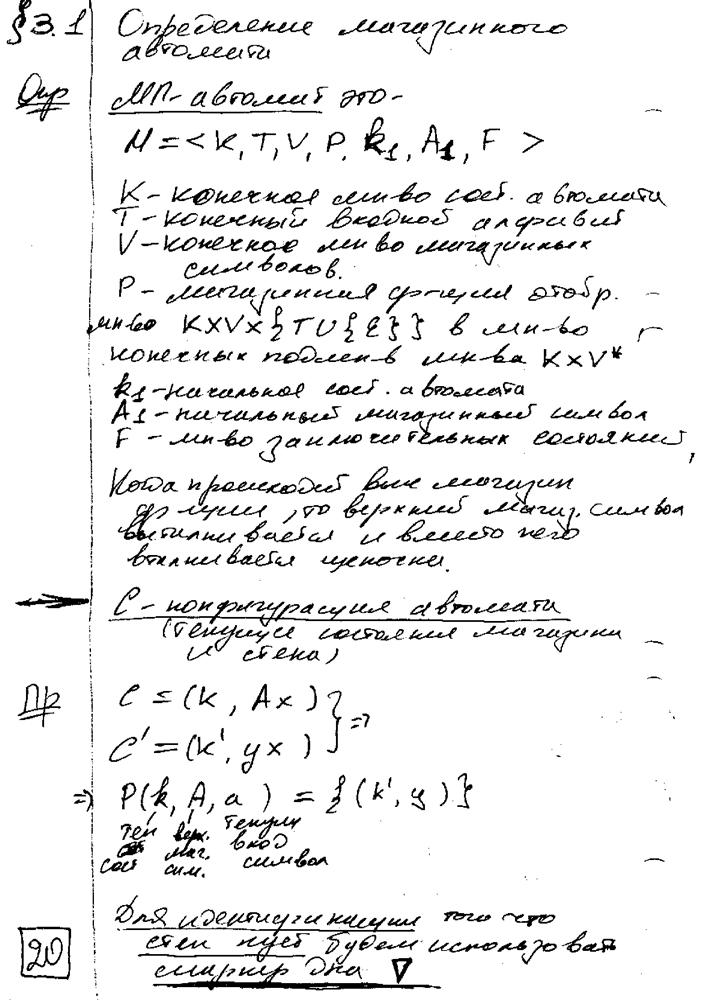 §3.1 Определение магазинного
автомата
Опр МП-автомат это -
M = < K, T, V, P, k₁, A₁, F >
K - конечное мн-во сост. автомата
T - конечный входной алфавит
V - конечное мн-во магазинных
символов.
P - магазинная ф-ция отобр.
мн-во K×V×{T∪{ε}} в мн-во
конечных подмн-в мн-ва K×V*
k₁ - начальное сост. автомата
A₁ - начальный магазинный символ
F - мн-во заключительных состояний,
Когда происходит магазин
функции, то верхний магаз. символ
выталкивается и вместо него
вталкивается цепочка.
C - конфигурация автомата
(текущее состояния магазина
и стека)
Пр C = (k, Ax) } ⇒
C' = (k', yx)
⇒ P(k, A, a) = {(k', y)}
тек верх. текущ
маг. вход
сост сим. символ
Для идентификации того что
стек пуст будем использовать
маркер дна ∇
20